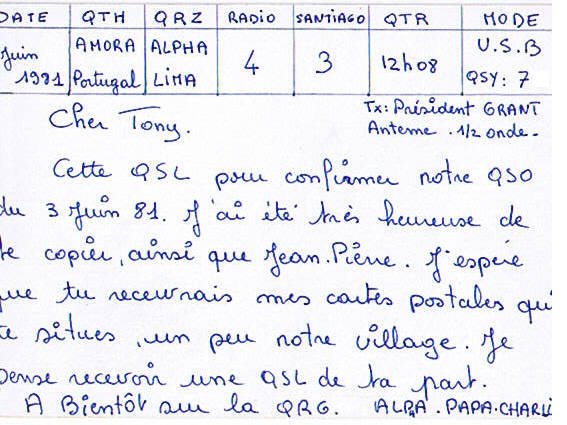 DATE QTH QRZ RADIO SANTIAGO QTR MODE
Juin 1981 AMORA Portugal ALPHA LIMA 4 3 12h08 U.S.B QSY: 7
Tx: Président GRANT
Antenne . 1/2 onde -
Cher Tony.
Cette QSL pour confirmer notre QSO
du 3 Juin 81. J'ai été très heureuse de
te copier, ainsi que Jean.Pierre. J'espère
que tu recevrais mes cartes postales qui
te situes, un peu notre village. Je
pense recevoir une QSL de ta part.
A Bientôt sur la QRG. ALPA. PAPA. CHARLI